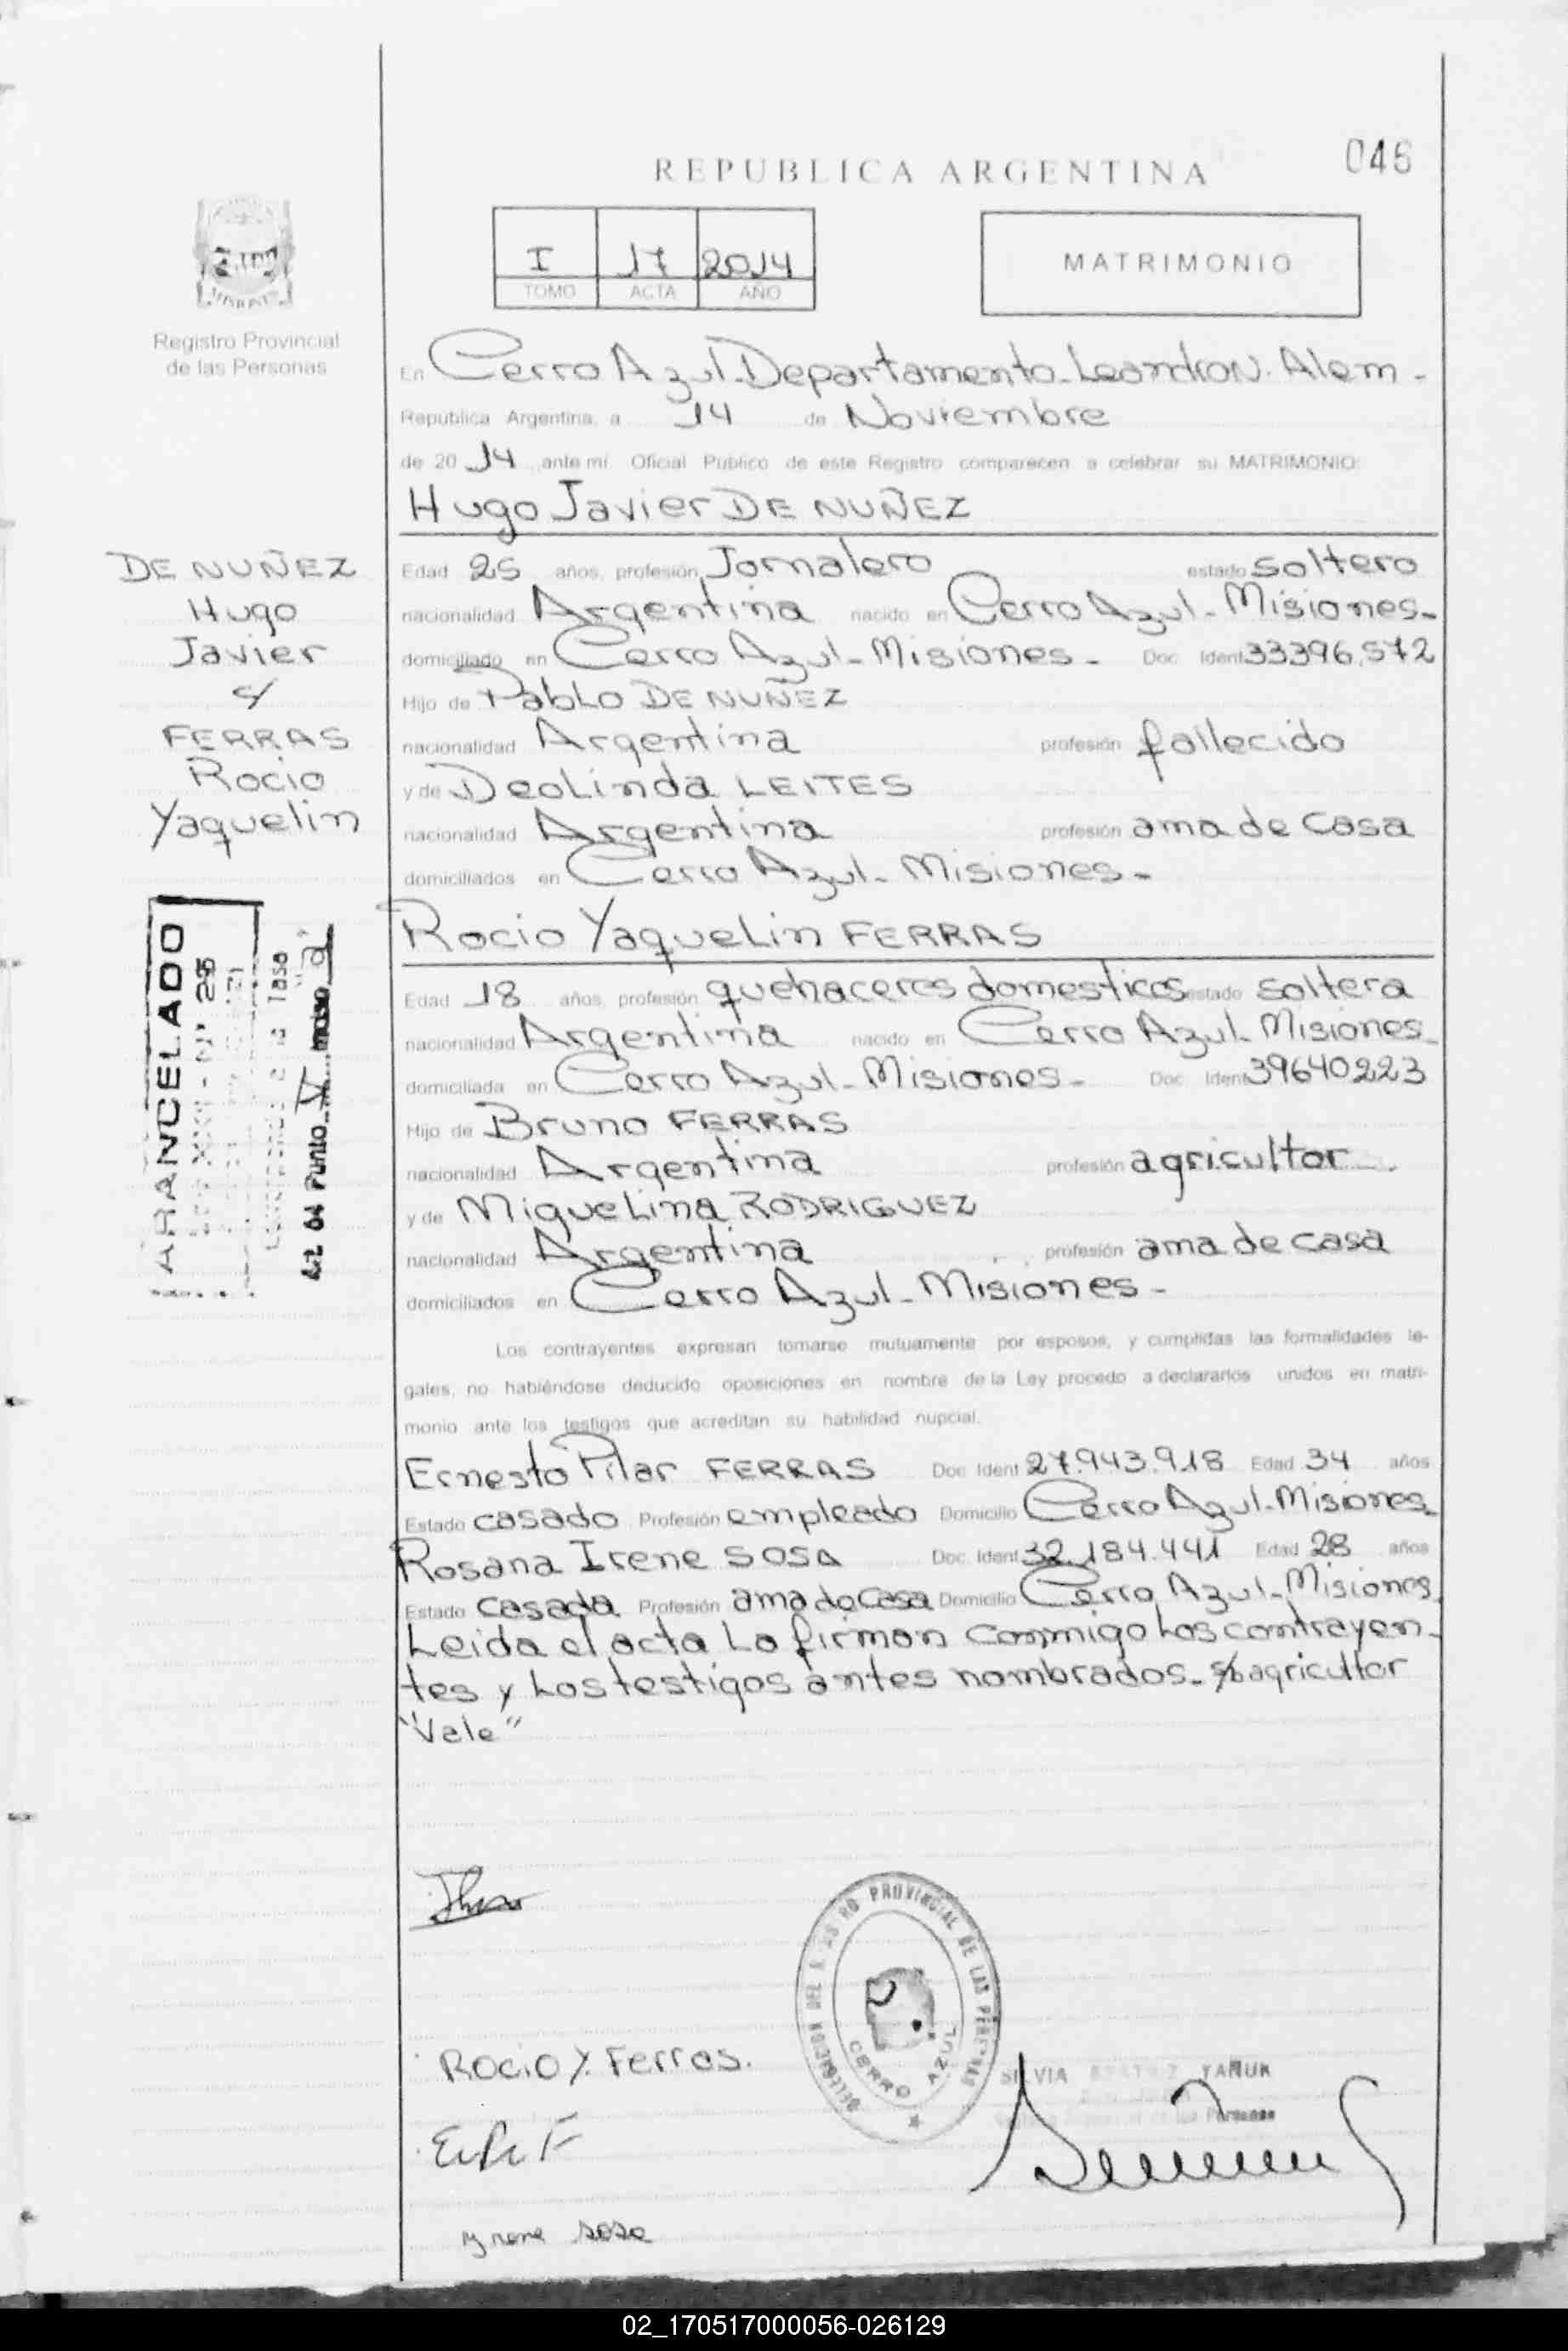 046
REPUBLICA ARGENTINA
I 17 2014
TOMO ACTA AÑO
MATRIMONIO
Registro Provincial
de las Personas
En Cerro Azul-Departamento-Leandro N. Alem-
República Argentina, a 14 de Noviembre
de 2014 ante mí Oficial Público de este Registro comparecen a celebrar su MATRIMONIO:
Hugo Javier DE NUÑEZ
DE NUÑEZ
Hugo
Javier
c/
FERRAS
Rocio
Yaquelin
Edad 25 años, profesión Jornalero estado soltero
nacionalidad Argentina nacido en Cerro Azul-Misiones-
domiciliado en Cerro Azul-Misiones- Doc Ident 33396.572
Hijo de Pablo DE NUÑEZ
nacionalidad Argentina profesión fallecido
y de Deolinda LEITES
nacionalidad Argentina profesión ama de casa
domiciliados en Cerro Azul-Misiones-
Rocio Yaquelin FERRAS
Edad 18 años, profesión quehaceres domesticos estado soltera
nacionalidad Argentina nacido en Cerro Azul-Misiones-
domiciliada en Cerro Azul-Misiones- Doc Ident 39640223
Hijo de Bruno FERRAS
nacionalidad Argentina profesión agricultor
y de Miguelina RODRIGUEZ
nacionalidad Argentina profesión ama de casa
domiciliados en Cerro Azul-Misiones-
ARANCELADO
Punto V inciso a
Los contrayentes expresan tomarse mutuamente por esposos, y cumplidas las formalidades le-
gales, no habiéndose deducido oposiciones en nombre de la Ley procedo a declararlos unidos en matri-
monio ante los testigos que acreditan su habilidad nupcial.
Ernesto Pilar FERRAS Doc Ident 27.943.918 Edad 34 años
Estado casado Profesión empleado Domicilio Cerro Azul-Misiones-
Rosana Irene SOSA Doc. Ident 32.184.441 Edad 28 años
Estado casada Profesión ama de casa Domicilio Cerro Azul-Misiones-
Leida el acta la firman conmigo los contrayen-
tes y los testigos antes nombrados- s/b agricultor
"Vale"
DELEGACION DEL REGISTRO PROVINCIAL DE LAS PERSONAS
CERRO AZUL
Rocio Y. Ferras.
SILVIA YAÑUK
de las Personas
E.P. F
Yrene sosa
02_170517000056-026129